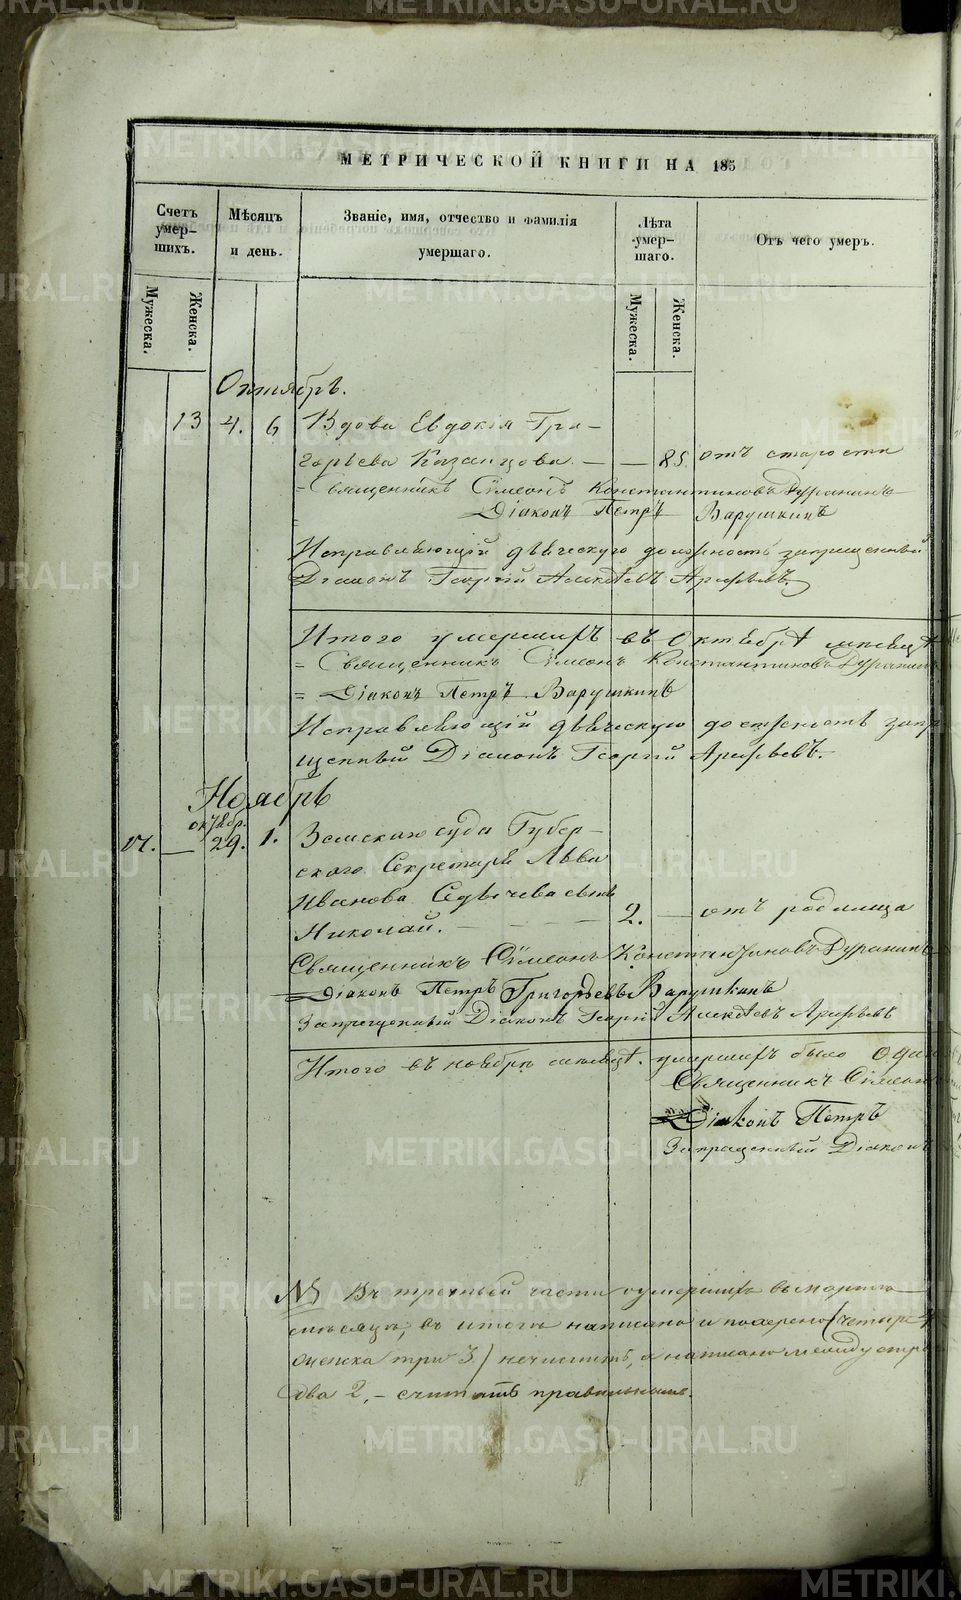 МЕТРИЧЕСКОЙ КНИГИ НА 185
Счетъ умер-шихъ.
Мѣсяцъ и день.
Званіе, имя, отчество и фамилія умершаго.
Лѣта умер-шаго.
Отъ чего умеръ.
Мужеска.
Женска.
Мужеска.
Женска.
Октябрь.
13 4. 6 Вдова Евдокія Гри-
горьева Казанцова. — — 85. отъ старости
Священникъ Сѵмеонъ Константиновъ Дуранинъ
Діаконъ Петръ Варушкинъ
Исправляющій дьяческую должность запрещенный
Діаконъ Георгій Алексѣевъ Арефьевъ
Итого умершихъ въ Октябрѣ месяцѣ
Священникъ Сѵмеонъ Константиновъ Дуранинъ
Діаконъ Петръ Варушкинъ
Исправляющій дьяческую должность запре
щенный Діаконъ Георгій Арефьевъ.
Ноябрь
октябр.
17. — 29. 1. Земскаго суда Губер-
скаго Секретаря Льва
Иванова сынъ
Николай. — 2. — отъ родимца
Священникъ Сѵмеонъ Константиновъ Дуранинъ
Діаконъ Петръ Григорьевъ Варушкинъ
Запрещенный Діаконъ Георгій Алексѣевъ Арефьевъ
Итого въ ноябрѣ месяцѣ умершихъ было один
Священникъ Сѵмеон
Діаконъ Петръ
Запрещенный Діаконъ
Въ третьей части умершихъ въ мартѣ
месяцѣ, въ итогѣ написано и (четыре 4
женска три 3) нечислить, а написано между стро
два 2, — считать правильнымъ.
METRIKI.GASO-URAL.RU